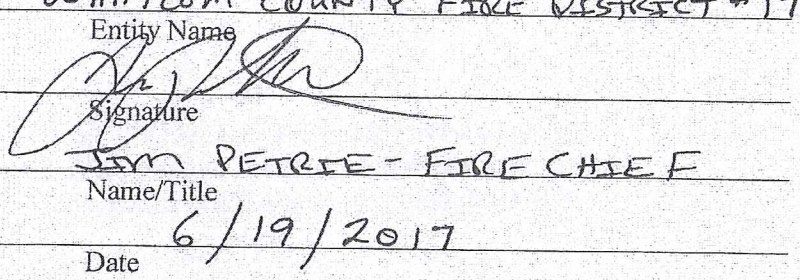 WHATCOM COUNTY FIRE DISTRICT # 17
Entity Name
Signature
JIM PETRIE - FIRE CHIEF
Name/Title
6/19/2017
Date